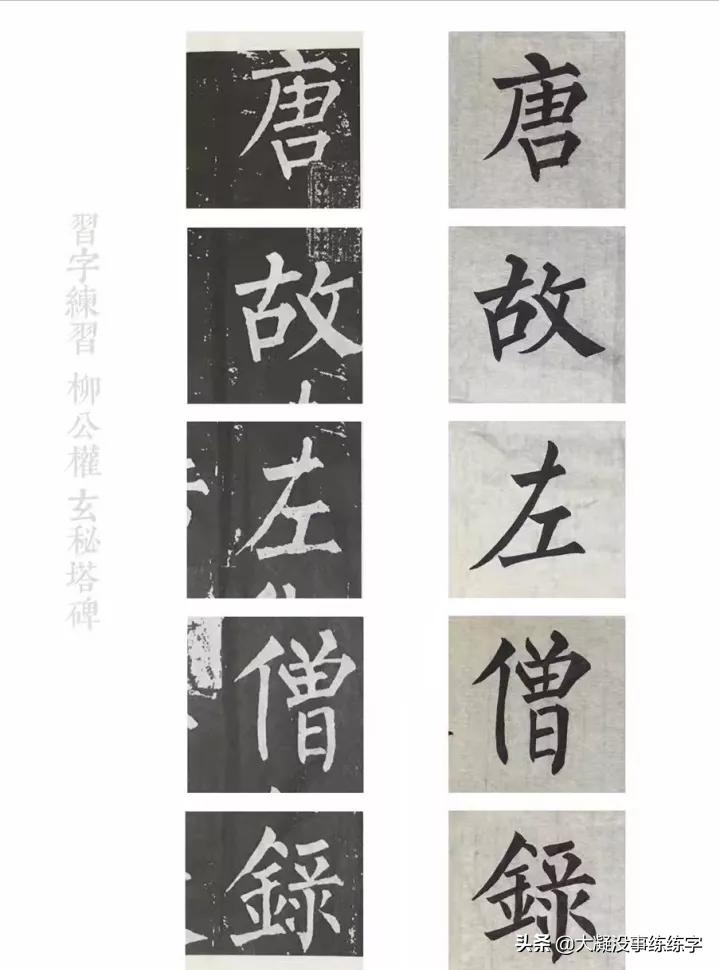 習字練習 柳公權 玄秘塔碑
唐 唐
故 故
左 左
僧 僧
錄 錄
头条 @大凝没事练练字